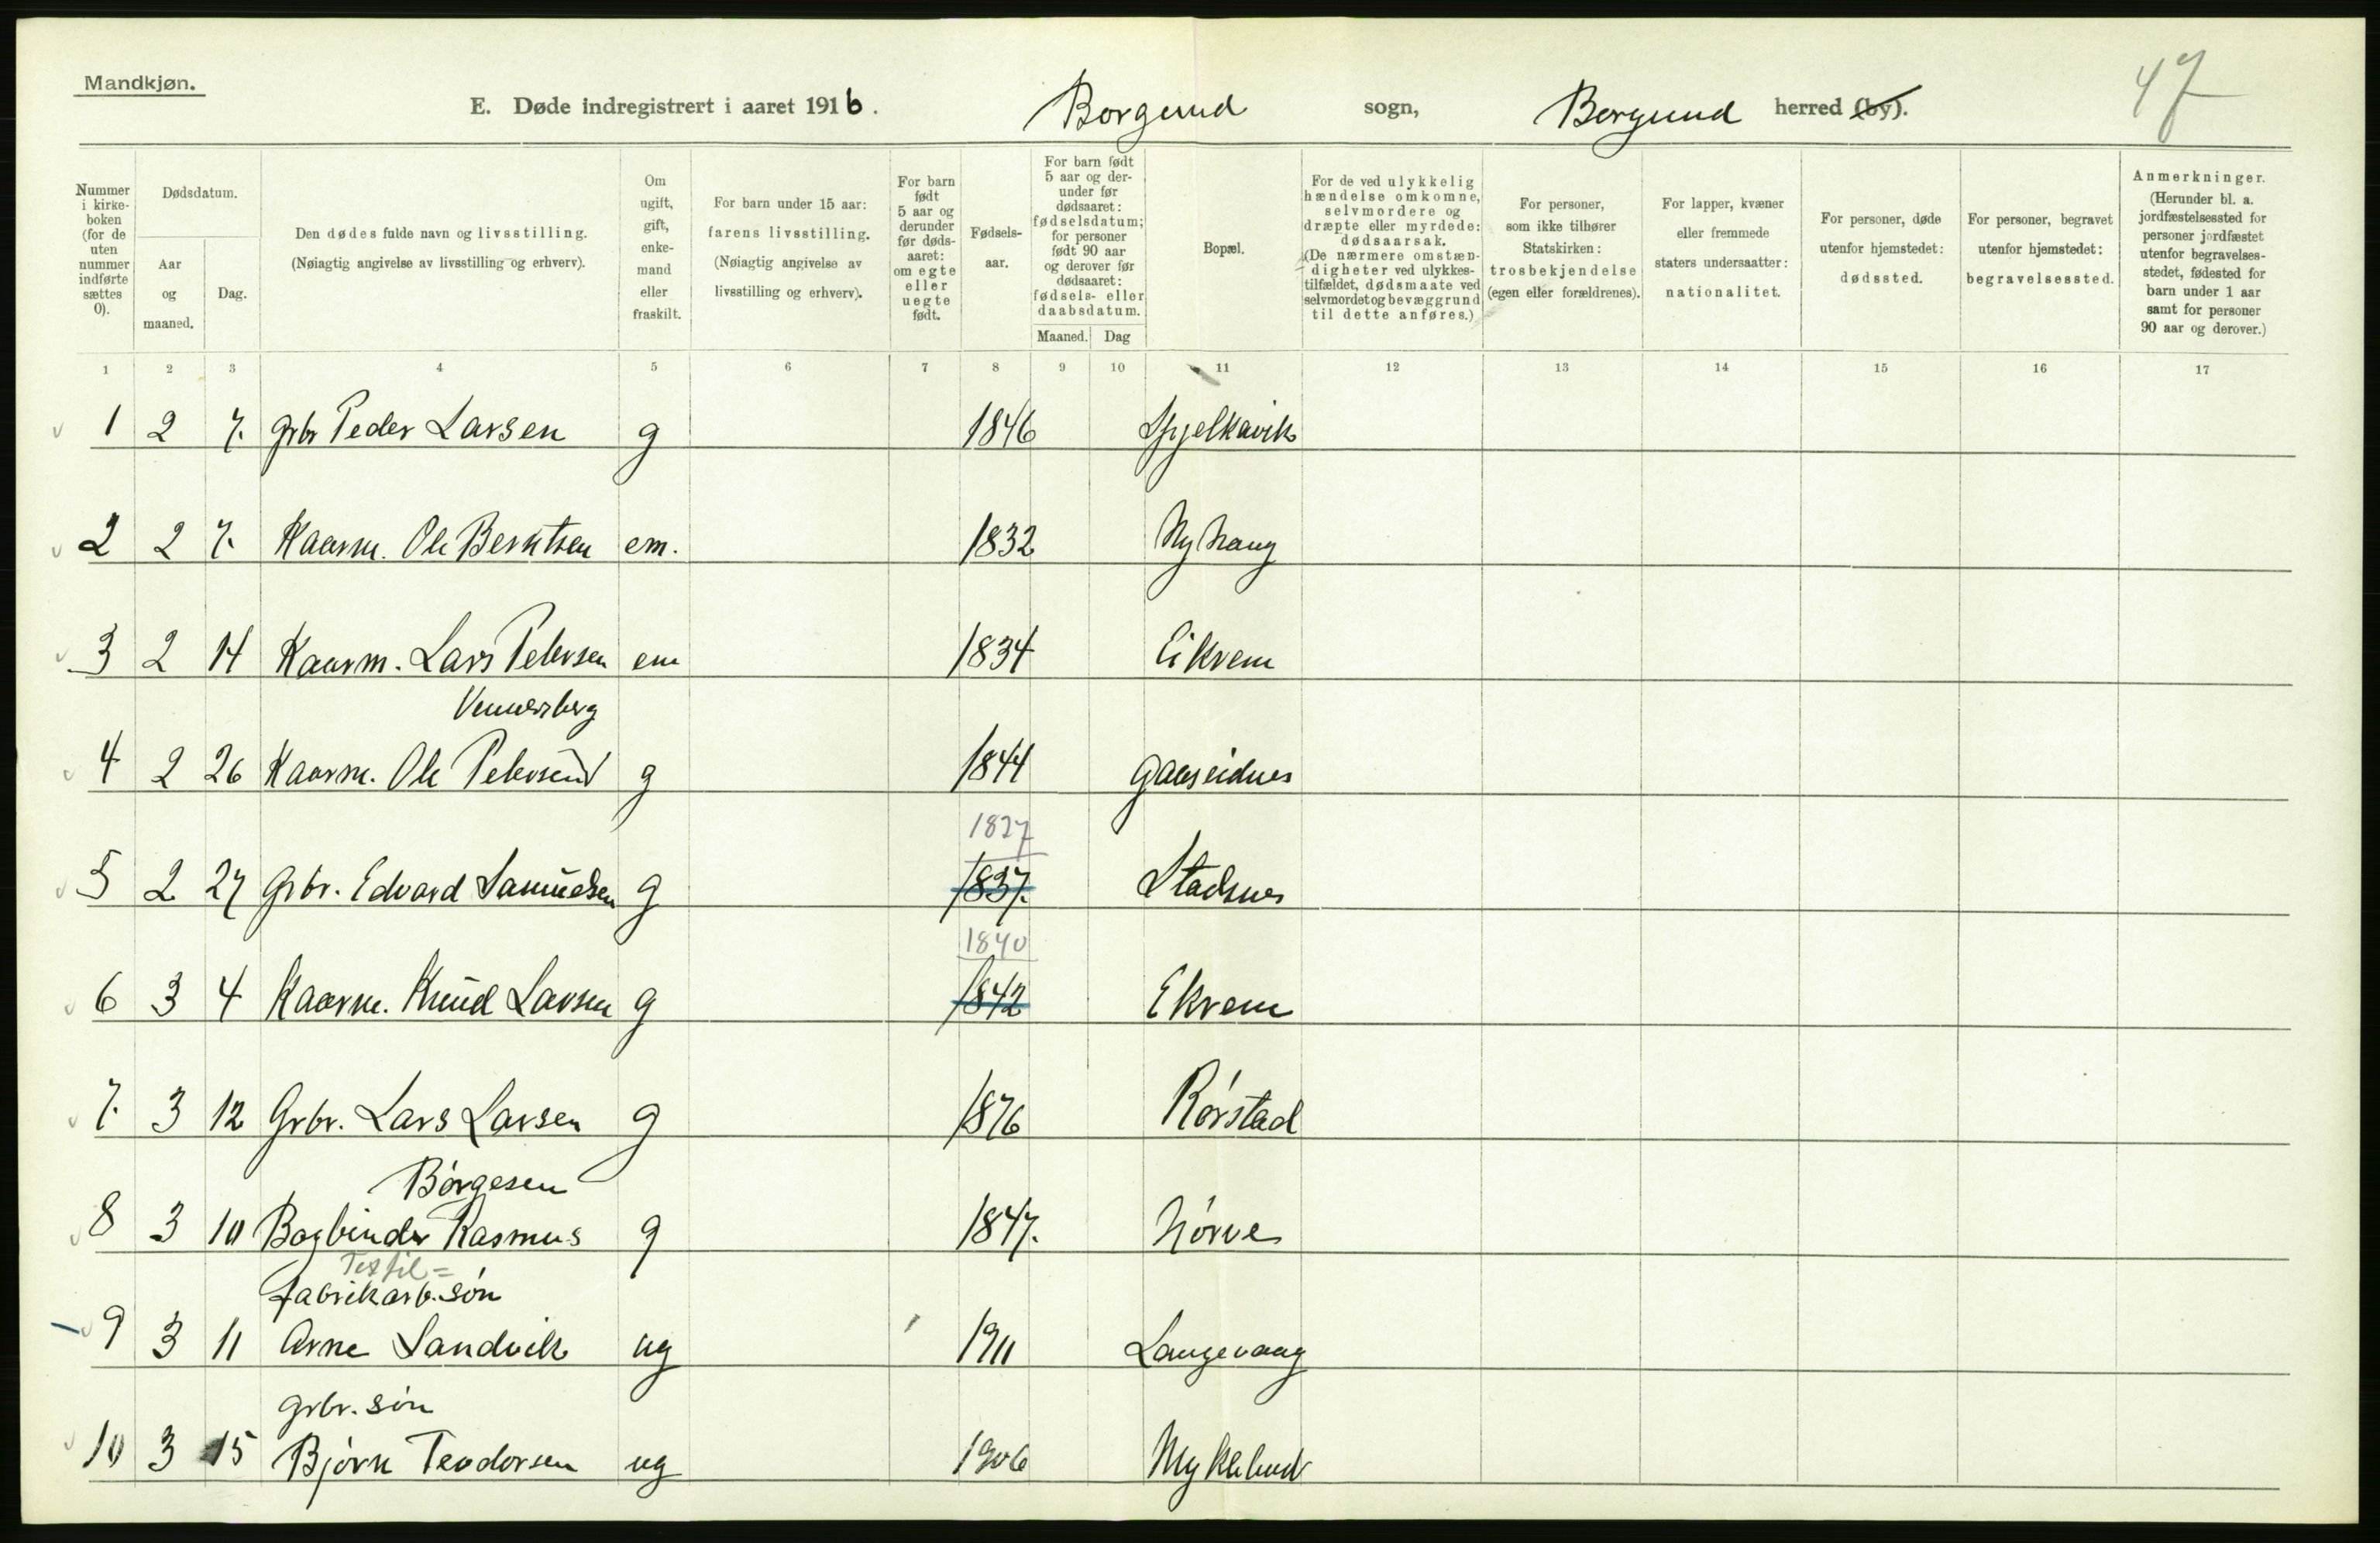 Mandkjøn.
47
E. Døde indregistrert i aaret 1916. Borgund sogn, Borgund herred (by).
Nummer i kirke-boken (for de uten nummer indførte sættes 0).
Dødsdatum.
Aar og maaned.
Dag.
Den dødes fulde navn og livsstilling.
(Nøiagtig angivelse av livsstilling og erhverv).
Om ugift, gift, enke-mand eller fraskilt.
For barn under 15 aar: farens livsstilling.
(Nøiagtig angivelse av livsstilling og erhverv).
For barn født 5 aar og derunder før døds-aaret: om egte eller uegte født.
Fødsels-aar.
For barn født 5 aar og der-under før dødsaaret: fødselsdatum; for personer født 90 aar og derover før dødsaaret: fødsels- eller daabsdatum.
Maaned. Dag
Bopæl.
For de ved ulykkelig hændelse omkomne, selvmordere og dræpte eller myrdede: dødsaarsak.
(De nærmere omstæn-digheter ved ulykkes-tilfældet, dødsmaate ved selvmordet og bevæggrund til dette anføres.)
For personer, som ikke tilhører Statskirken: trosbekjendelse (egen eller forældrenes).
For lapper, kvæner eller fremmede staters undersaatter: nationalitet.
For personer, døde utenfor hjemstedet: dødssted.
For personer, begravet utenfor hjemstedet: begravelsessted.
Anmerkninger.
(Herunder bl. a. jordfæstelsessted for personer jordfæstet utenfor begravelses-stedet, fødested for barn under 1 aar samt for personer 90 aar og derover.)
1 2 3 4 5 6 7 8 9 10 11 12 13 14 15 16 17
1 2 7. Grbr Peder Larsen g 1846 Spjelkavik
2 2 7. Kaarm. Ole Berntsen em. 1832 Nyhaug
3 2 14 Kaarm. Lars Petersen em 1834 Eikrem
Vennersberg
4 2 26 Kaarm. Ole g 1844 Gaaseidnes
1827
5 2 27 Grbr. Edvard Samuelsen g 1837. Stadsnes
1840
6 3 4 Kaarm. Knud Larsen g 1842 Ekrem
7. 3 12 Grbr. Lars Larsen g 1876 Rørstad
Børgesen
8 3 10 Bogbinder Rasmus g 1847. Nørve
Textil=
fabrikarb. søn
9 3 11 Arne Sandvik ug 1911 Langevaag
grbr. søn
10 3 15 Bjørn Teodorsen ug 1906 Myklebust